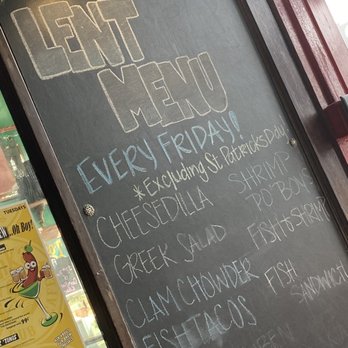 LENT
MENU
EVERY FRIDAY!
*Excluding St. Patricks Day!
CHEESEDILLA
GREEK SALAD
CLAM CHOWDER
FISH TACOS
SHRIMP
PO'BOYS
FISH & SHRIMP
FISH
SANDWICH
TUESDAYS
Oh Boy!